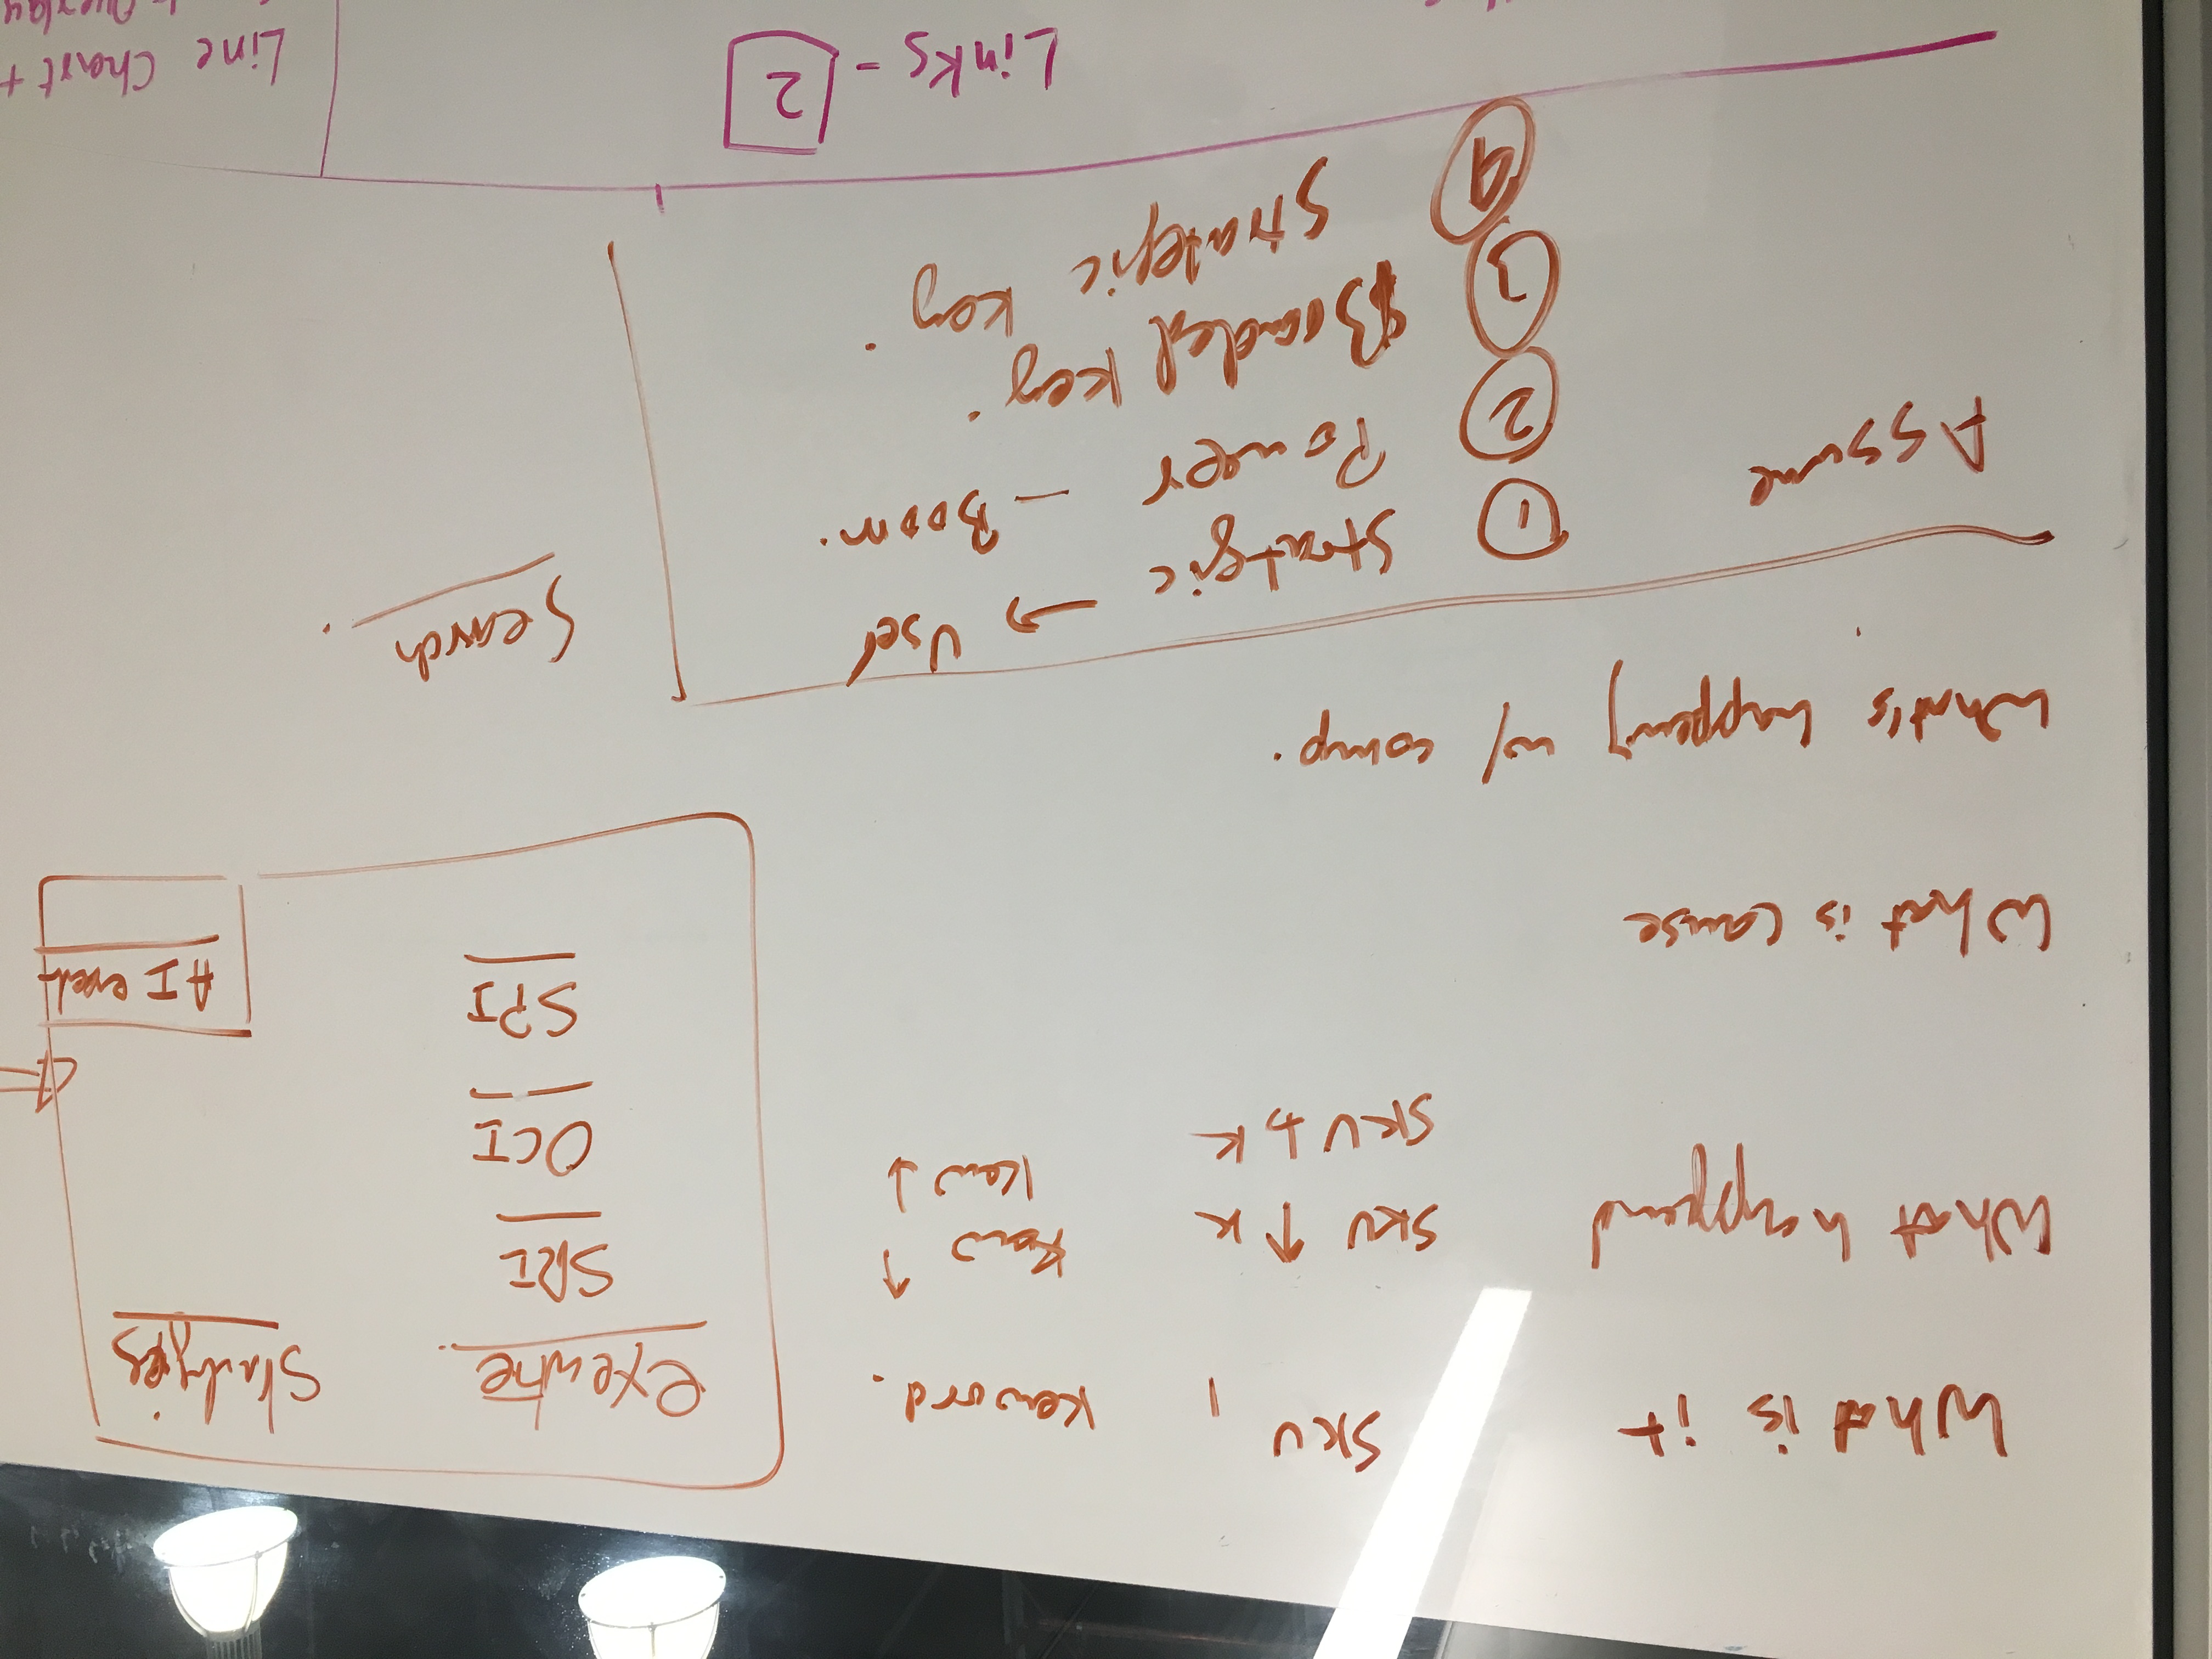 What is it SKU , Keword.
What happend SKU ↑ K Kew ↑
SKU ↓ K Kew ↓
What is cause
What's happening w/ comp.
Strategies
SRI
OCI
SPI
AI
Search.
Assume
① Stratgic → User
② Power – Boom.
③ Branded key.
④ Strategic key.
Links - 2
Line Chart +
Overlay